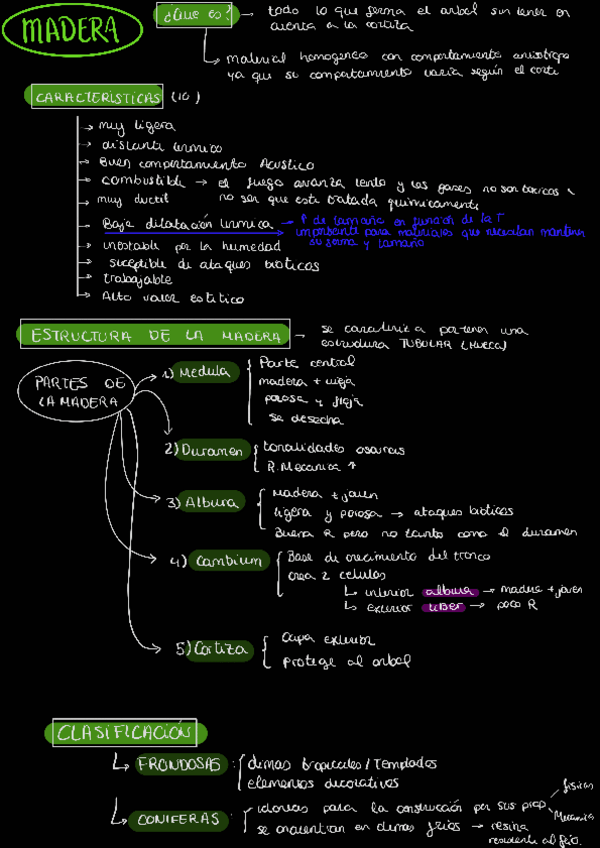 MADERA
¿Que es? → todo lo que forma el arbol sin tener en
cuenta a la cortiza
→ material homogeneo con comportamiento anisotropo
ya que su comportamiento varia según el corte
CARACTERISTICAS (10)
→ muy ligera
→ aislante termico
→ Buen comportamiento Acustico
→ combustible → el fuego avanza lento y los gases no son toxicos
no ser que este tratada quimicamente
→ muy ductil
→ Baja dilatación termica → de tamaño en función de la T
importante para materiales que necesitan mantener
su forma y tamaño
→ inestable por la humedad
→ suceptible de ataques bioticos
→ trabajable
→ Alto valor estetico
ESTRUCTURA DE LA MADERA → se caracteriza por tener una
estructura TUBULAR (HUECA)
PARTES DE
LA MADERA
1) Medula
Parte central
madera + vieja
porosa y floja
se desecha
2) Duramen
tonalidades oscuras
R. Mecanica ↑
3) Albura
Madera + joven
ligera y porosa → ataques bioticos
Buena R pero no tanto como el duramen
4) Cambium
Base de crecimiento del tronco
crea 2 celulas
↳ interior albura → madera + joven
↳ exterior liber → poca R
5) Cortiza
capa exterior
protege al arbol
CLASIFICACIÓN
↳ FRONDOSAS: climas tropicales / Templados
elementos decorativos
↳ CONIFERAS: idoneas para la construcción por sus prop fisicas
Mecanicas
se encuentran en climas frios → resina
resistente al frio.